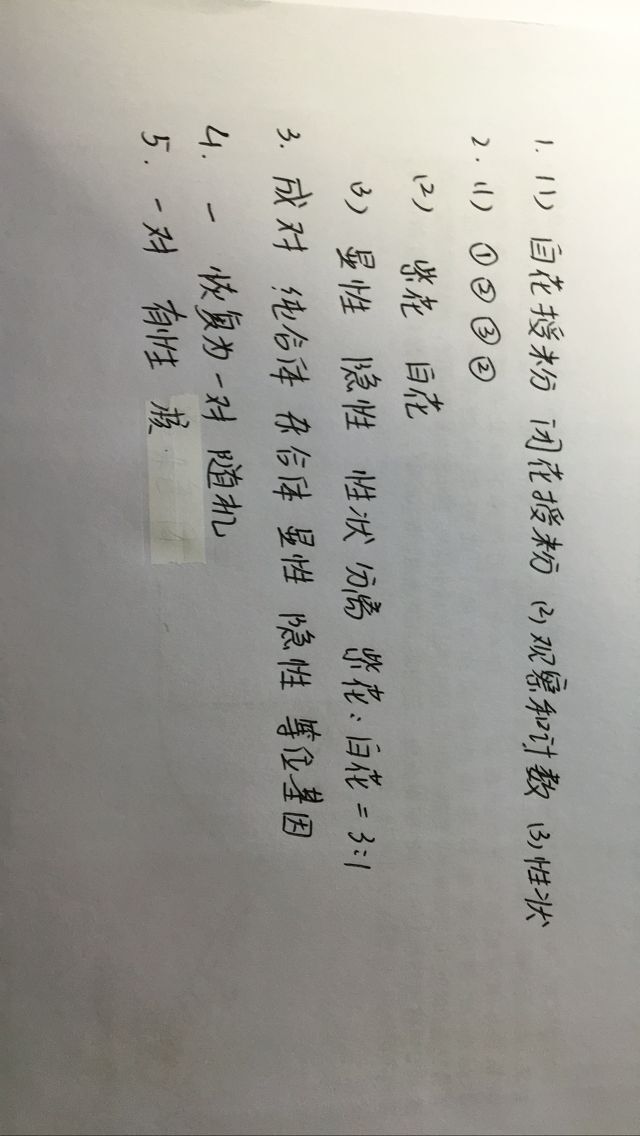 1. (1) 自花授粉 闭花授粉 (2) 观察和计数 (3) 性状
2. (1) ① ② ③ ②
(2) 紫花 白花
(3) 显性 隐性 性状分离 紫花:白花=3:1
3. 成对 纯合体 杂合体 显性 隐性 等位基因
4. 一 恢复为一对 随机
5. 一对 有性 核